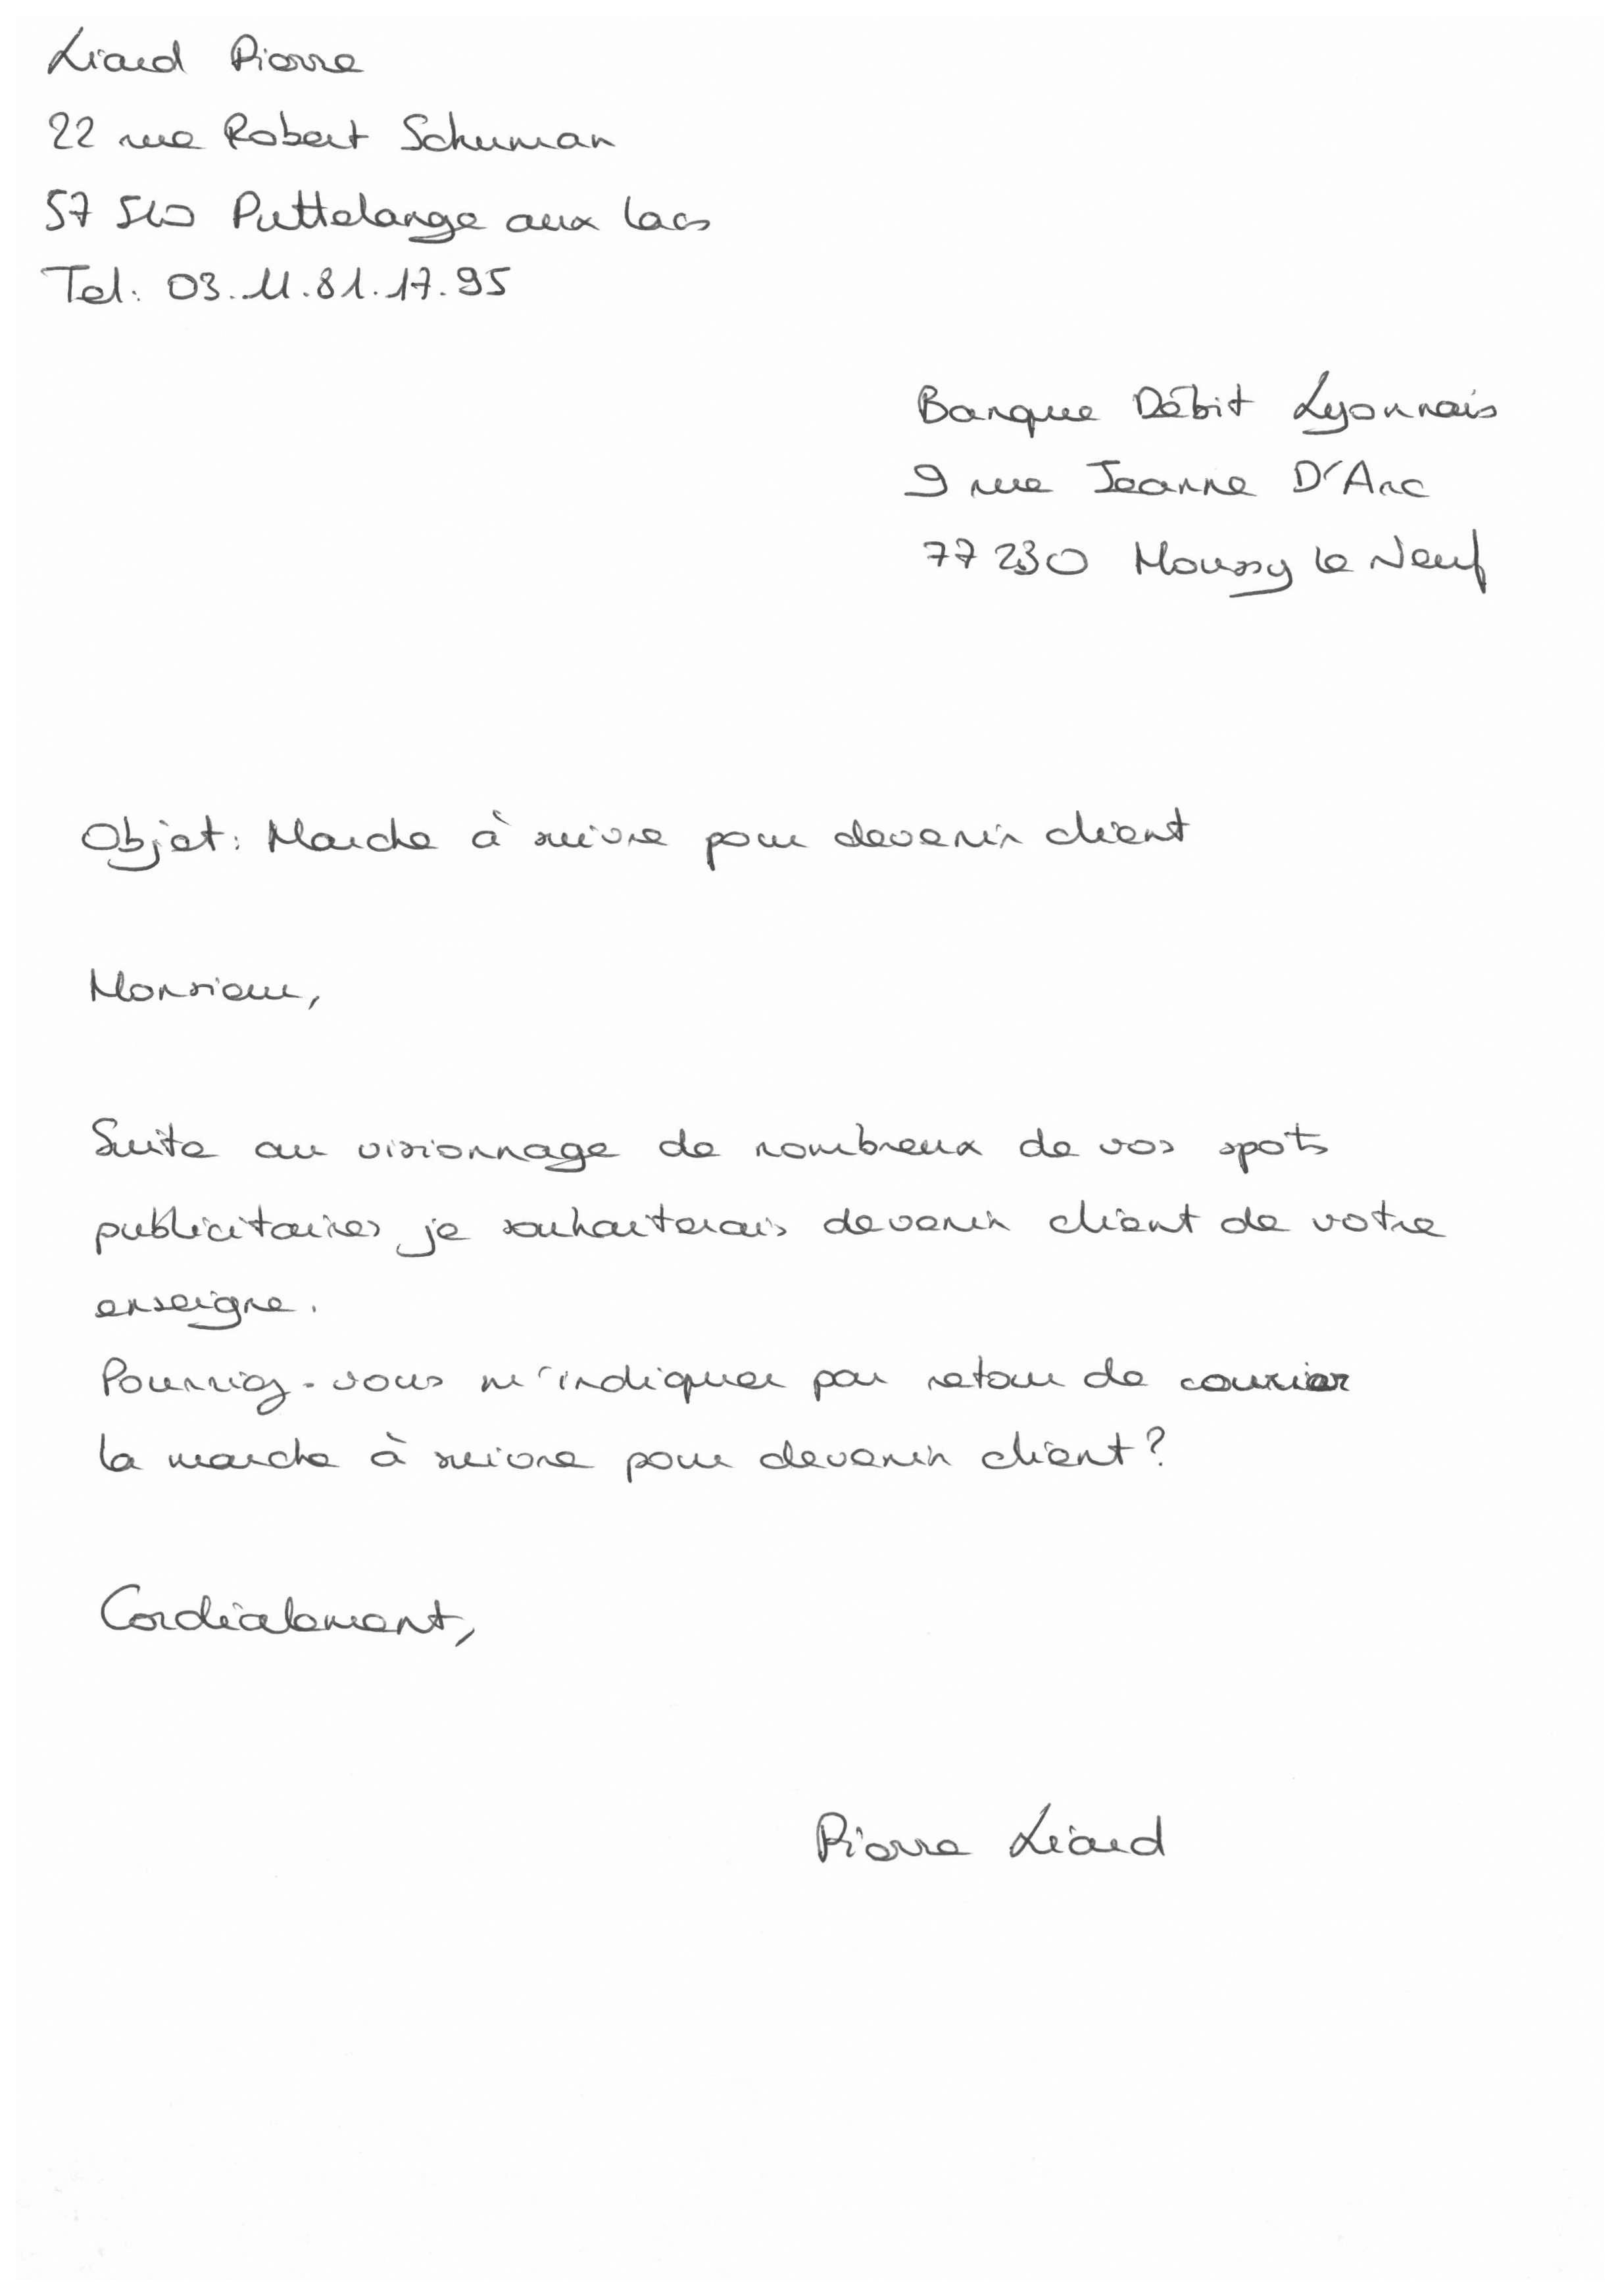 Liard Pierre
22 rue Robert Schuman
57 510 Puttelange aux lacs
Tel: 03.11.81.17.95
Banque Débit Lyonnais
9 rue Jeanne D'Arc
77 230 Moussy le Neuf
Objet: Marche à suivre pour devenir client
Monsieur,
Suite au visionnage de nombreux de vos spots
publicitaires je souhaiterais devenir client de votre
enseigne.
Pourriez-vous m'indiquer par retour de courier
la marche à suivre pour devenir client?
Cordialement,
Pierre Liard